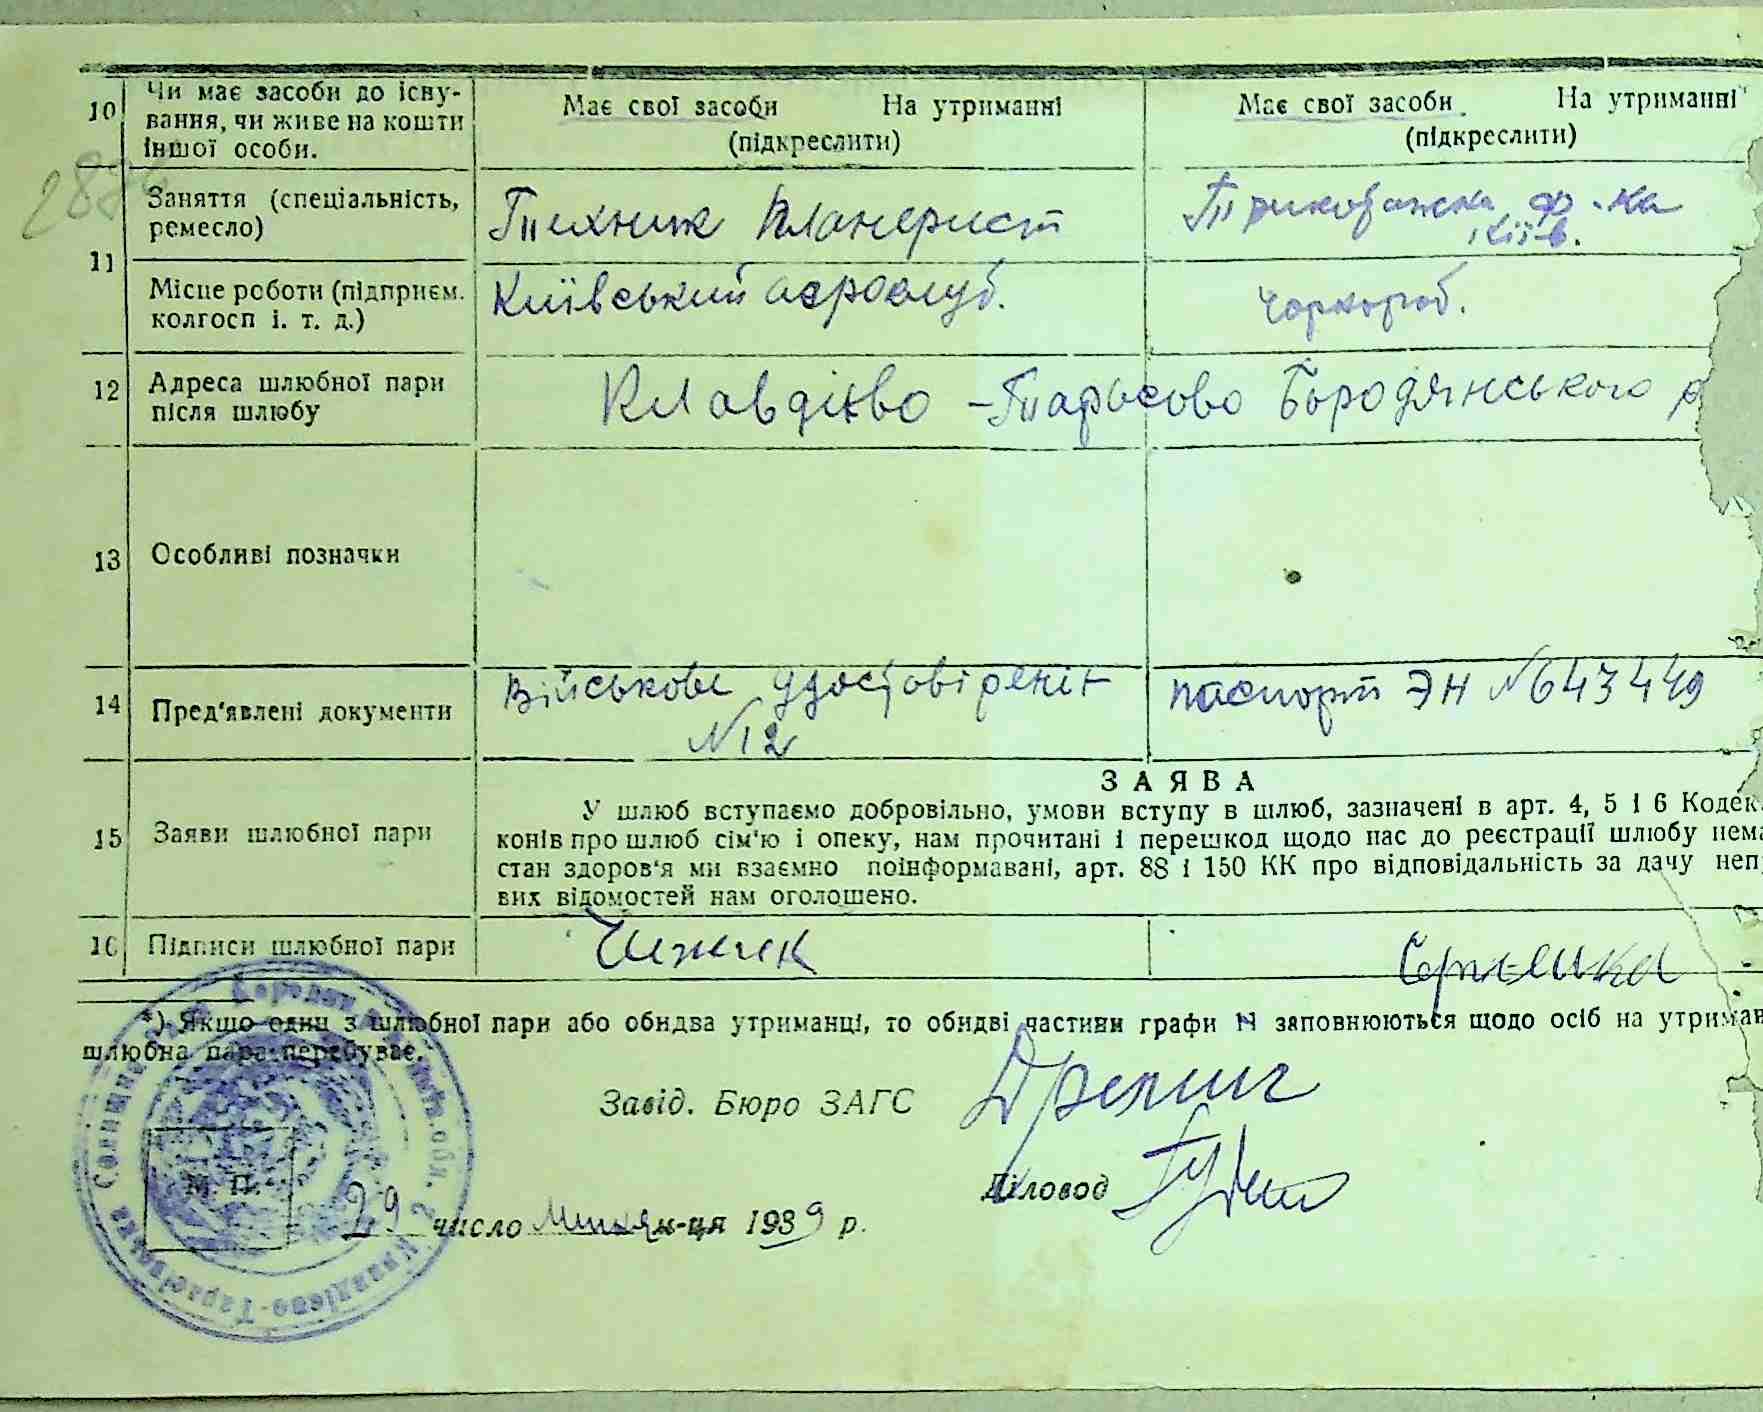 10 Чи має засоби до існу-
вання, чи живе на кошти
іншої особи.
Має свої засоби На утриманні
(підкреслити)
Має свої засоби На утриманні
(підкреслити)
11 Заняття (спеціальність,
ремесло)
Технік Планерист
Трикотажна ф-ка
Київ.
Місце роботи (підприєм.
колгосп і. т. д.)
Київський аероклуб.
чорнороб.
12 Адреса шлюбної пари
після шлюбу
Клавдієво-Тарасово Бородянського р
13 Особливі позначки
14 Пред'явлені документи
Військове удостовіреніє
№12
паспорт ЭН №643449
15 Заяви шлюбної пари
ЗАЯВА
У шлюб вступаємо добровільно, умови вступу в шлюб, зазначені в арт. 4, 5 і 6 Кодек
конів про шлюб сім'ю і опеку, нам прочитані і перешкод щодо нас до реєстрації шлюбу нема
стан здоров'я ми взаємно поінформавані, арт. 88 і 150 КК про відповідальність за дачу неп
вих відомостей нам оголошено.
16 Підписи шлюбної пари
Чижик
*) Якщо один з шлюбної пари або обидва утриманці, то обидві частини графи 11 заповнюються щодо осіб на утриман
шлюбна пара перебуває.
Завід. Бюро ЗАГС
Діловод
М. П.
29 число м-ця 1939 р.